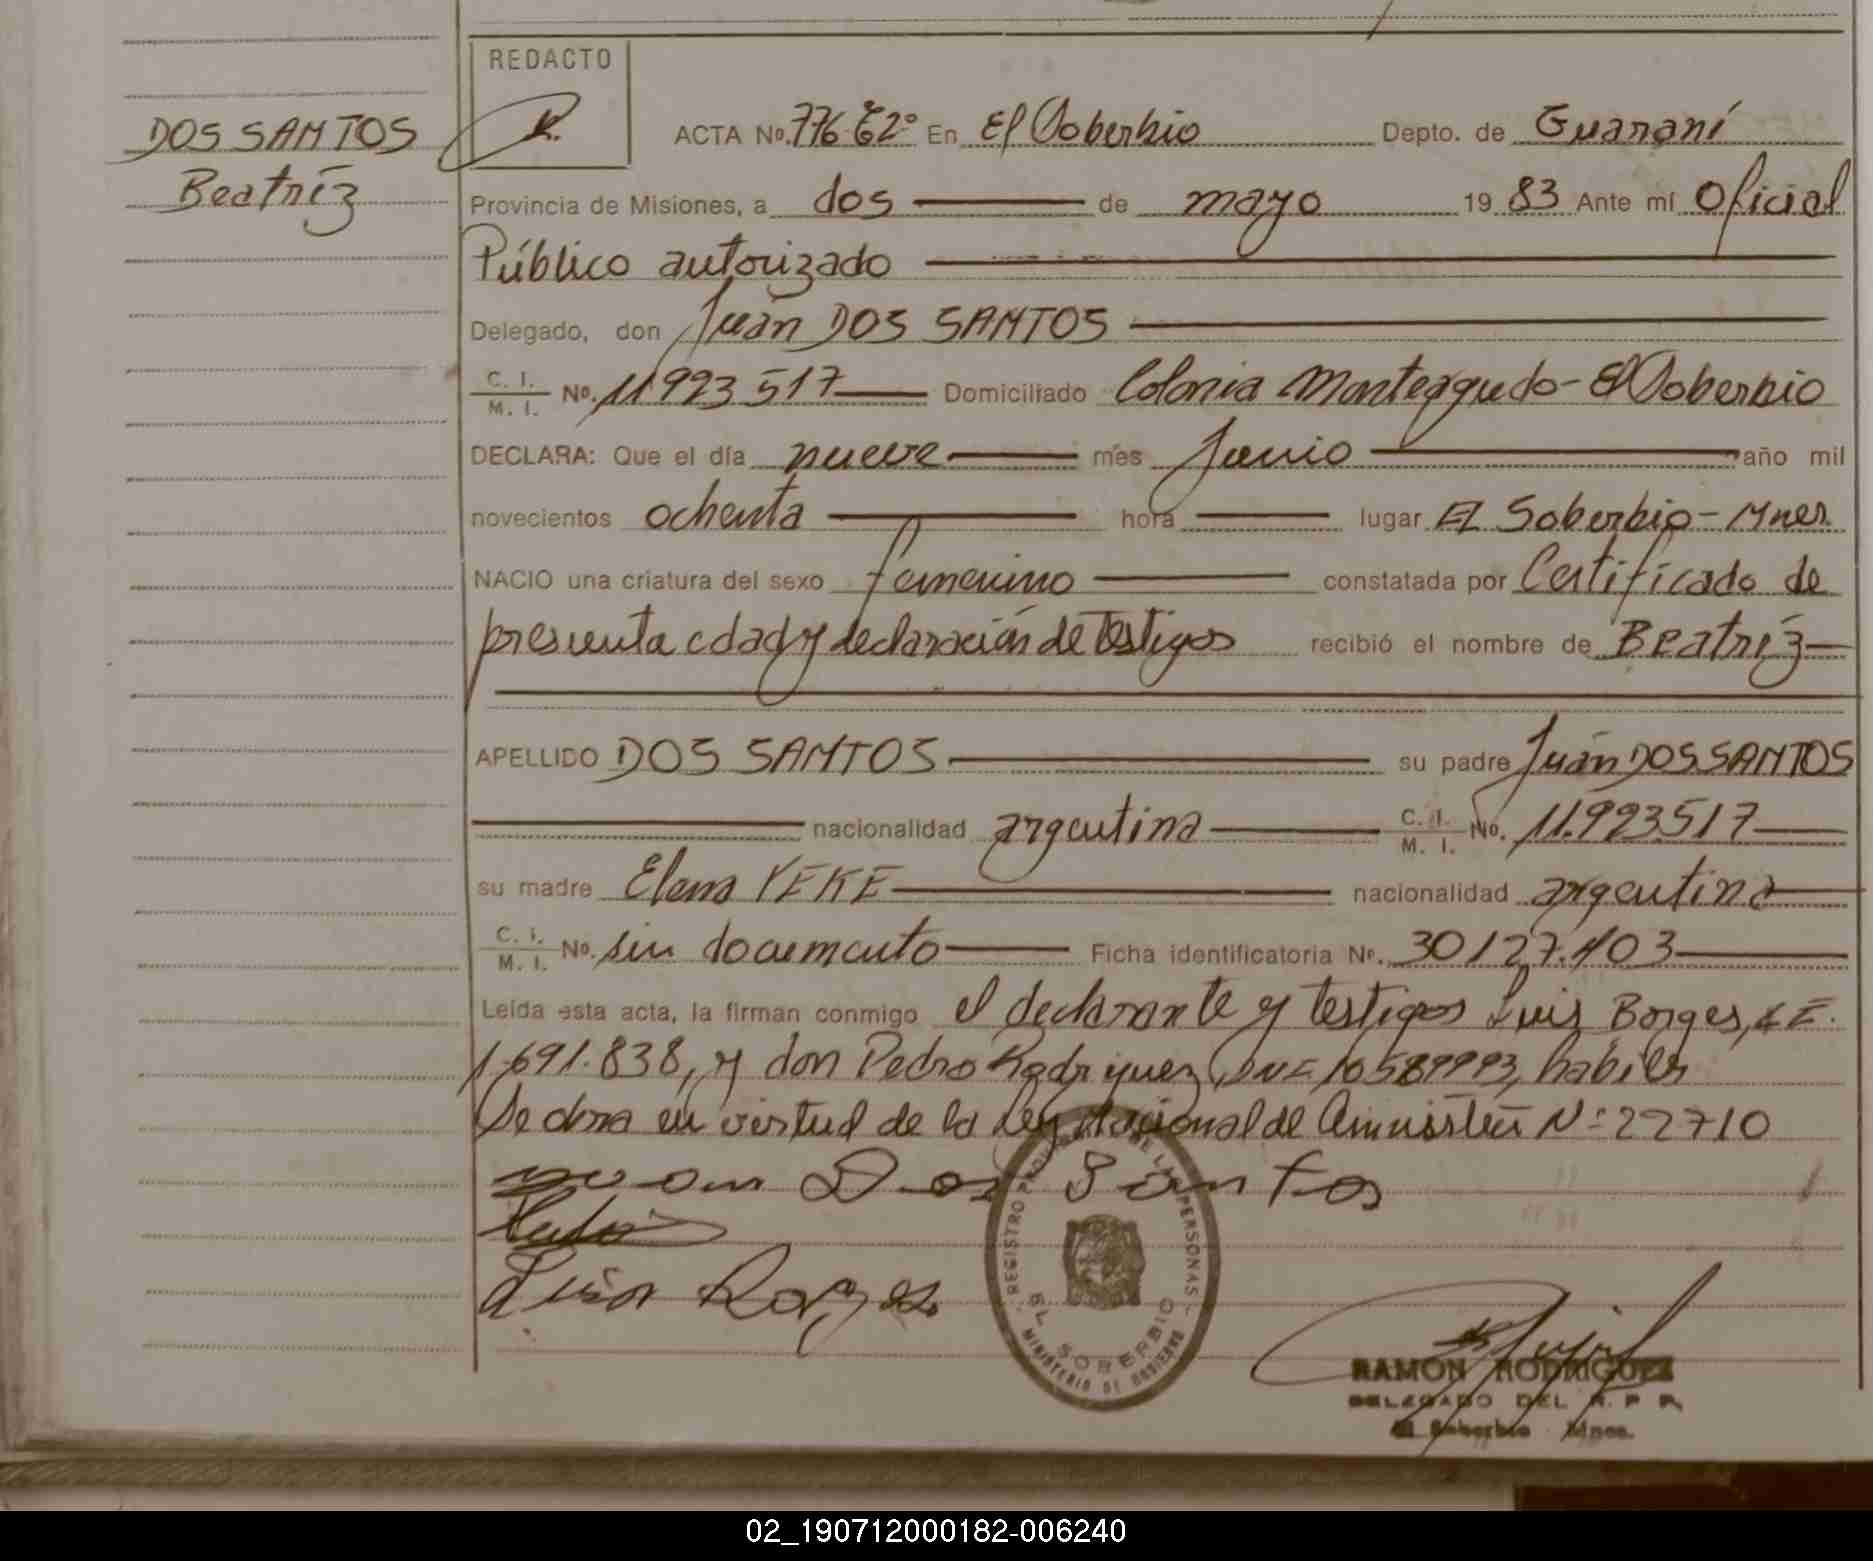 REDACTO
DOS SANTOS
Beatríz
ACTA No. 776 T2º En El Soberbio Depto. de Guaraní
Provincia de Misiones, a dos de mayo 19 83 Ante mí Oficial
Público autorizado
Delegado, don Juan DOS SANTOS
C. I. M. I. No. 11923517 Domiciliado Colonia Monteagudo - El Soberbio
DECLARA: Que el día nueve mes Junio año mil
novecientos ochenta hora lugar El Soberbio - Mnes
NACIO una criatura del sexo femenino constatada por Certificado de
presunta edad y declaración de testigos recibió el nombre de Beatríz
APELLIDO DOS SANTOS su padre Juan DOS SANTOS
nacionalidad argentina C. I. M. I. No. 11.923517
su madre Elena YEKE nacionalidad argentina
C. I. M. I. No. sin documento Ficha identificatoria Nº. 30127.403
Leída esta acta, la firman conmigo el declarante y testigos Luis Borges, L E.
1.691.838, y don Pedro Rodriguez, DNI 10589993, habiles
Se obra en virtud de la Ley Nacional de Amnistía Nº 22710
Juan Dos Santos
Luis Borges
REGISTRO PROVINCIAL DE LAS PERSONAS
EL SOBERBIO
MINISTERIO DE GOBIERNO
RAMON RODRIGUEZ
DELEGADO DEL R. P. P.
El Soberbio Mnes.
02_190712000182-006240